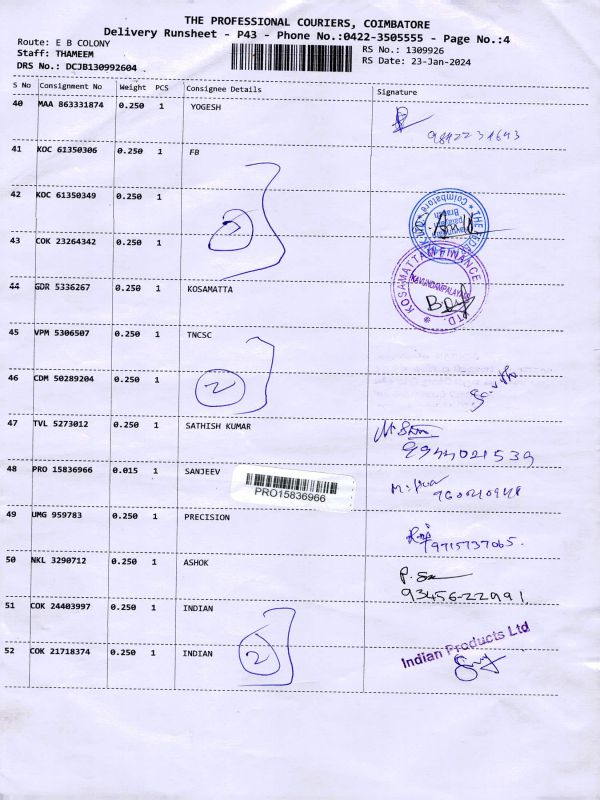 THE PROFESSIONAL COURIERS, COIMBATORE
Delivery Runsheet - P43 - Phone No.:0422-3505555 - Page No.:4
Route: E B COLONY
RS No.: 1309926
Staff: THAMEEM
RS Date: 23-Jan-2024
DRS No.: DCJB130992604
S No Consignment No Weight PCS Consignee Details Signature
40 MAA 863331874 0.250 1 YOGESH
41 KOC 61350306 0.250 1 FB
42 KOC 61350349 0.250 1
43 COK 23264342 0.250 1
44 GDR 5336267 0.250 1 KOSAMATTA
KOSAMATTAM FINANCE LTD
KAVUNDAMPALAYAM
45 VPM 5306507 0.250 1 TNCSC
46 CDM 50289204 0.250 1
2
47 TVL 5273012 0.250 1 SATHISH KUMAR
9944021539
48 PRO 15836966 0.015 1 SANJEEV
PRO15836966
49 UMG 959783 0.250 1 PRECISION
9715737065.
50 NKL 3290712 0.250 1 ASHOK
93456-22991
51 COK 24403997 0.250 1 INDIAN
Indian Products Ltd
52 COK 21718374 0.250 1 INDIAN
2